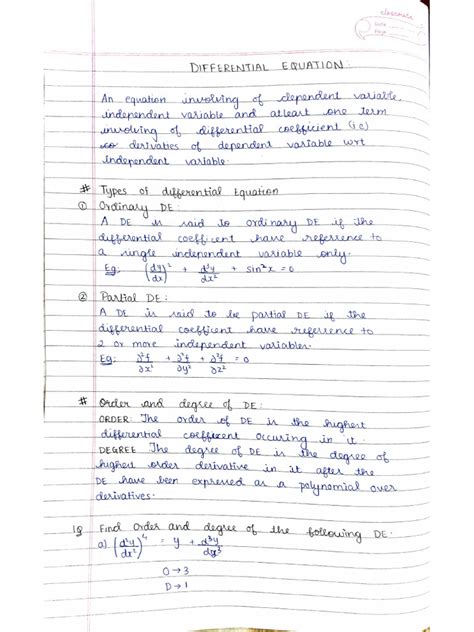 classmate
Date
Page
DIFFERENTIAL EQUATION:
An equation involving of dependent variable,
independent variable and atleast one term
involving of differential coefficient (i.e)
derivaties of dependent variable wrt
independent variable.
# Types of differential Equation
① Ordinary DE:
A DE is said to ordinary DE if the
differential coefficient have reference to
a single independent variable only.
Eg: (dy/dx)² + d²y/dx² + sin²x = 0
② Partial DE:
A DE is said to be partial DE if the
differential coefficient have reference to
2 or more independent variables.
Eg: ∂²f/∂x² + ∂²f/∂y² + ∂²f/∂z² = 0
# Order and degree of DE:
ORDER: The order of DE is the highest
differential coefficient occuring in it.
DEGREE The degree of DE is the degree of
highest order derivative in it after the
DE have been expressed as a polynomial over
derivatives.
1Q Find Order and degree of the following DE:
a) (d²y/dx²)⁴ = y + d³y/dx³
O→3
D→1